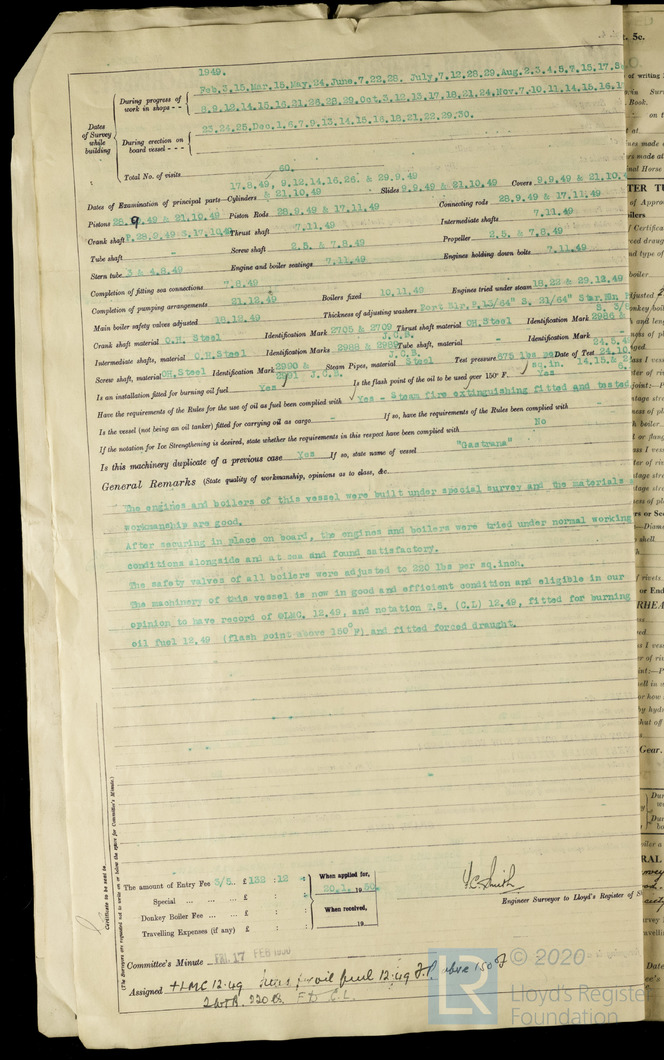 1949.
Feb.3,15,Mar.15,May,24,June.7,22,28. July,7,12,28,29,Aug.2,3,4,5,7,15,17.
During progress of work in shops - -
8,9,12,14,15,16,21,26,28,29,Oct.3,12,13,17,18,21,24,Nov.7,10,11,14,15,16,
Dates of Survey while building
During erection on board vessel - - -
23,24,25,Dec.1,6,7,9,13,14,15,16,18,21,22,29,30.
Total No. of visits 60.
Dates of Examination of principal parts—Cylinders 17.8.49, 9.12.14.16.26. & 29.9.49 & 21.10.49 Slides 9.9.49 & 21.10.49 Covers 9.9.49 & 21.10.
Pistons 28.9.49 & 21.10.49 Piston Rods 28.9.49 & 17.11.49 Connecting rods 28.9.49 & 17.11.49
Crank shaft Thrust shaft 7.11.49 Intermediate shafts 7.11.49
Tube shaft - Screw shaft 2.5. & 7.8.49 Propeller 2.5. & 7.8.49
Stern tube 3 & 4.8.49 Engine and boiler seatings 7.11.49 Engines holding down bolts 7.11.49
Completion of fitting sea connections 7.8.49
Completion of pumping arrangements 21.12.49 Boilers fixed 10.11.49 Engines tried under steam 18,22 & 29.12.49
Main boiler safety valves adjusted 18.12.49 Thickness of adjusting washers Port Blr. P.13/64" S. 21/64" Star.
Crank shaft material O.H. Steel Identification Mark 2705 & 2709 J.C.B. Thrust shaft material OH.Steel Identification Mark 2986
Intermediate shafts, material O.H.Steel Identification Marks 2988 & 2989 J.C.B. Tube shaft, material - Identification Mark -
Screw shaft, material OH.Steel Identification Mark 2990 & 2991 J.C.B. Steam Pipes, material Steel Test pressure 675 lbs per sq.in. Date of Test
Is an installation fitted for burning oil fuel Yes Is the flash point of the oil to be used over 150° F. Yes
Have the requirements of the Rules for the use of oil as fuel been complied with Yes - Steam fire extinguishing fitted and tested
Is the vessel (not being an oil tanker) fitted for carrying oil as cargo - If so, have the requirements of the Rules been complied with -
If the notation for Ice Strengthening is desired, state whether the requirements in this respect have been complied with No
Is this machinery duplicate of a previous case Yes If so, state name of vessel "Gastrana"
General Remarks (State quality of workmanship, opinions as to class, &c.
The engines and boilers of this vessel were built under special survey and the materials
workmanship are good.
After securing in place on board, the engines and boilers were tried under normal working
conditions alongside and at sea and found satisfactory.
The safety valves of all boilers were adjusted to 220 lbs per sq.inch.
The machinery of this vessel is now in good and efficient condition and eligible in our
opinion to have record of +LMC. 12.49, and notation T.S. (C.L) 12.49, fitted for burning
oil fuel 12.49 (flash point above 150°F) and fitted forced draught.
Certificate to be sent to
(The Surveyors are requested not to write on or below the space for Committee's Minute.)
The amount of Entry Fee 3/5.. £ 132 : 12 :
Special ... ... ... £ : :
Donkey Boiler Fee ... ... £ : :
Travelling Expenses (if any) £ : :
When applied for,
20.1. 19 50.
When received,
19
J.C. Smith
Engineer Surveyor to Lloyd's Register of
Committee's Minute FRI. 17 FEB 1950
Assigned + LMC 12.49 fitted for oil fuel 12.49 F.P. above 150°F
2 WTB. 220 lb. FD C.L.
© 2020
LR
Lloyd's Register
Foundation